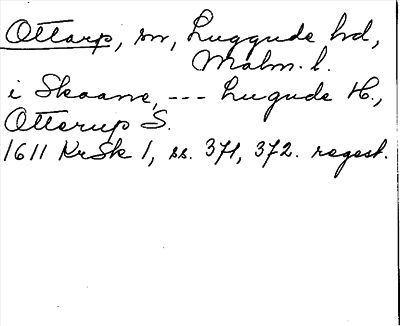 Ottarp, sn, Luggude hd,
Malm. l.
i Skaane, --- Lugude H.,
Otterup S.
1611 KrSk 1, ss. 371, 372. regest.